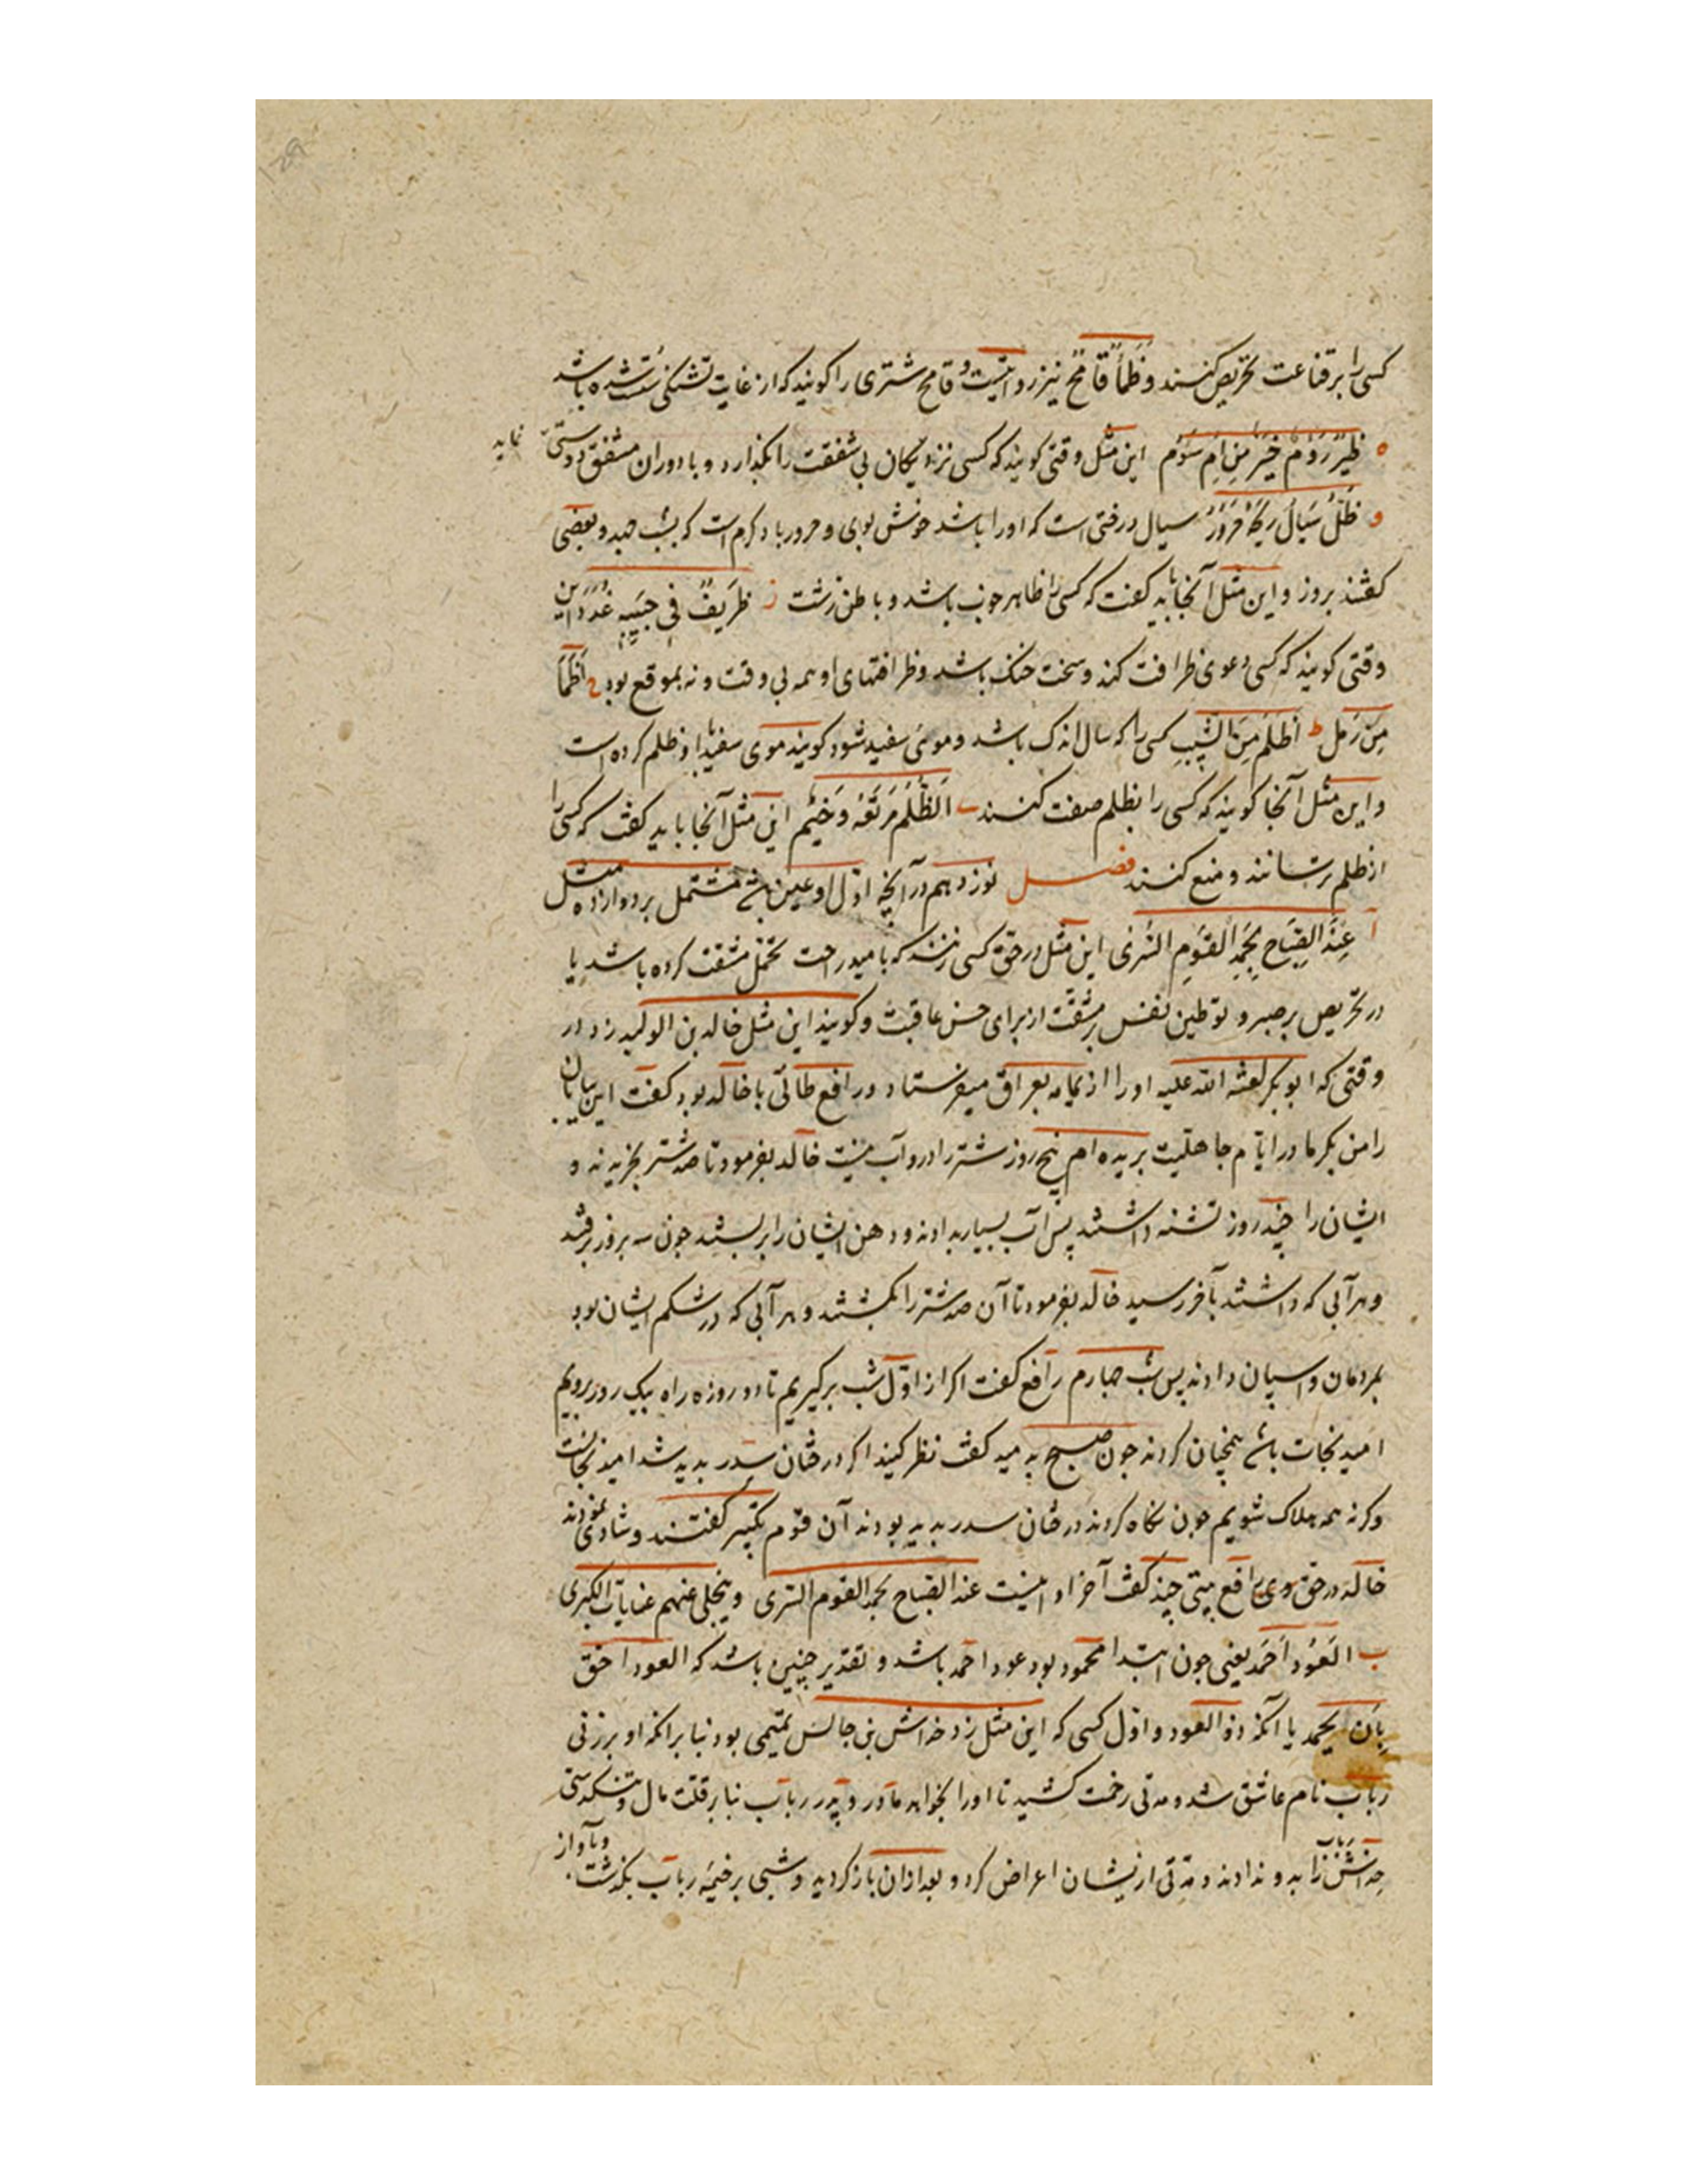 کسی را بر قناعت تحریص کنند و ظَمَأٌ قَامِحٌ نیز روایتست و قامح شتری را کویند که از غایت تشنکی سست شده باشد
ه ظِئْرٌ رَؤُمٌ خَیْرٌ مِنْ اُمٍّ سَؤُمٍ این مثل وقتی کویند که کسی نزدیکان بی شفقت را بکذارد و با دوران مشفق دوستی نماید
و ظِلُّ سَیَالٍ رِیحُهُ حَرُورٌ سیال درختی است که او را باشد خوش بوی و حرور باد کرم است که بشب جهد و بعضی
کفتند بروز و این مثل آنجا باید کفت که کسی را ظاهر خوب باشد و باطن زشت ز ظَرِیفٌ فی جَیْبِهِ غُدَدٌ این
وقتی کویند که کسی دعوی ظرافت کند و سخت خنک باشد و ظرافتهای او همه بی وقت و نه بموقع بود ح اَظْمَأُ
مِنْ رَمْلٍ ط اَظْلَمُ مِنَ الشَّیْبِ کسی را که سال اندک باشد و موی سفید شود کویند موی سفید با او ظلم کرده است
و این مثل آنجا کویند که کسی را بظلم صفت کنند ی اَلظُّلْمُ مَرْتَعُهُ وَخِیمٌ این مثل آنجا باید کفت که کسی را
از ظلم بترسانند و منع کنند فصل نوزدهم در آنچه اوّل او عین باشد مشتمل بر دوازده مثل
آ عِنْدَ الصَّبَاحِ یَحْمَدُ القَوْمُ السُّرَی این مثل در حق کسی زنند که بامید راحت تحمّل مشقت کرده باشد یا
در تحریص بر صبر و توطین نفس بر مشقّت از برای حسن عاقبت و کویند این مثل خالد بن الولید زد در
وقتی که ابو بکر لعنه الله علیه او را از یمامه بعراق میفرستاد و رافع طائی با خالد بود کفت این بیابان
را من یکبار در ایّام جاهلیت بریده ام پنج روز شتر را درو آب نیست خالد بفرمود تا صد شتر بخریدند و
ایشان را چند روز تشنه داشتند پس آب بسیار بدادند و دهن ایشان را بر بستند چون سه روز برفتند
و هر آبی که داشتند بآخر رسید خالد بفرمود تا آن صد شتر را بکشتند و هر آبی که در شکم ایشان بود
بمردمان و اسپان دادند پس شب چهارم رافع کفت اکر از اوّل شب برکیریم تا دو روزه راه بیک روز برویم
امید نجات باشد همچنان کردند چون صبح بدمید کفت نظر کنید اکر درختان سدر پدید شد امید نجاتست
وکرنه همه هلاک شویم چون نکاه کردند درختان سدر پدید بودند آن قوم تکبیر کفتند و شادی نمودند
خالد در حق وی رافع بیتی چند کفت آخر او اینست عند الصباح یحمد القوم السری وینجلی عنهم غیابات الکری
ب اَلعَوْدُ اَحْمَدُ یعنی چون ابتدا محمود بود عود احمد باشد و تقدیر چنین باشد که العود احق
بِأَنْ یحمد یا آنکه ذو العود و اوّل کسی که این مثل زد خداش بن حابس تمیمی بود بنا بر آنکه او بر زنی
رباب نام عاشق شد و مدتی زحمت کشید تا او را بخواهد مادر و پدر رباب بنا بر قلّت مال و تنکدستی
خداش رباب را بدو ندادند و مدّتی از ایشان اعراض کرد و بعد از آن باز کردید و شبی بر خیمه رباب بکذشت و بآواز